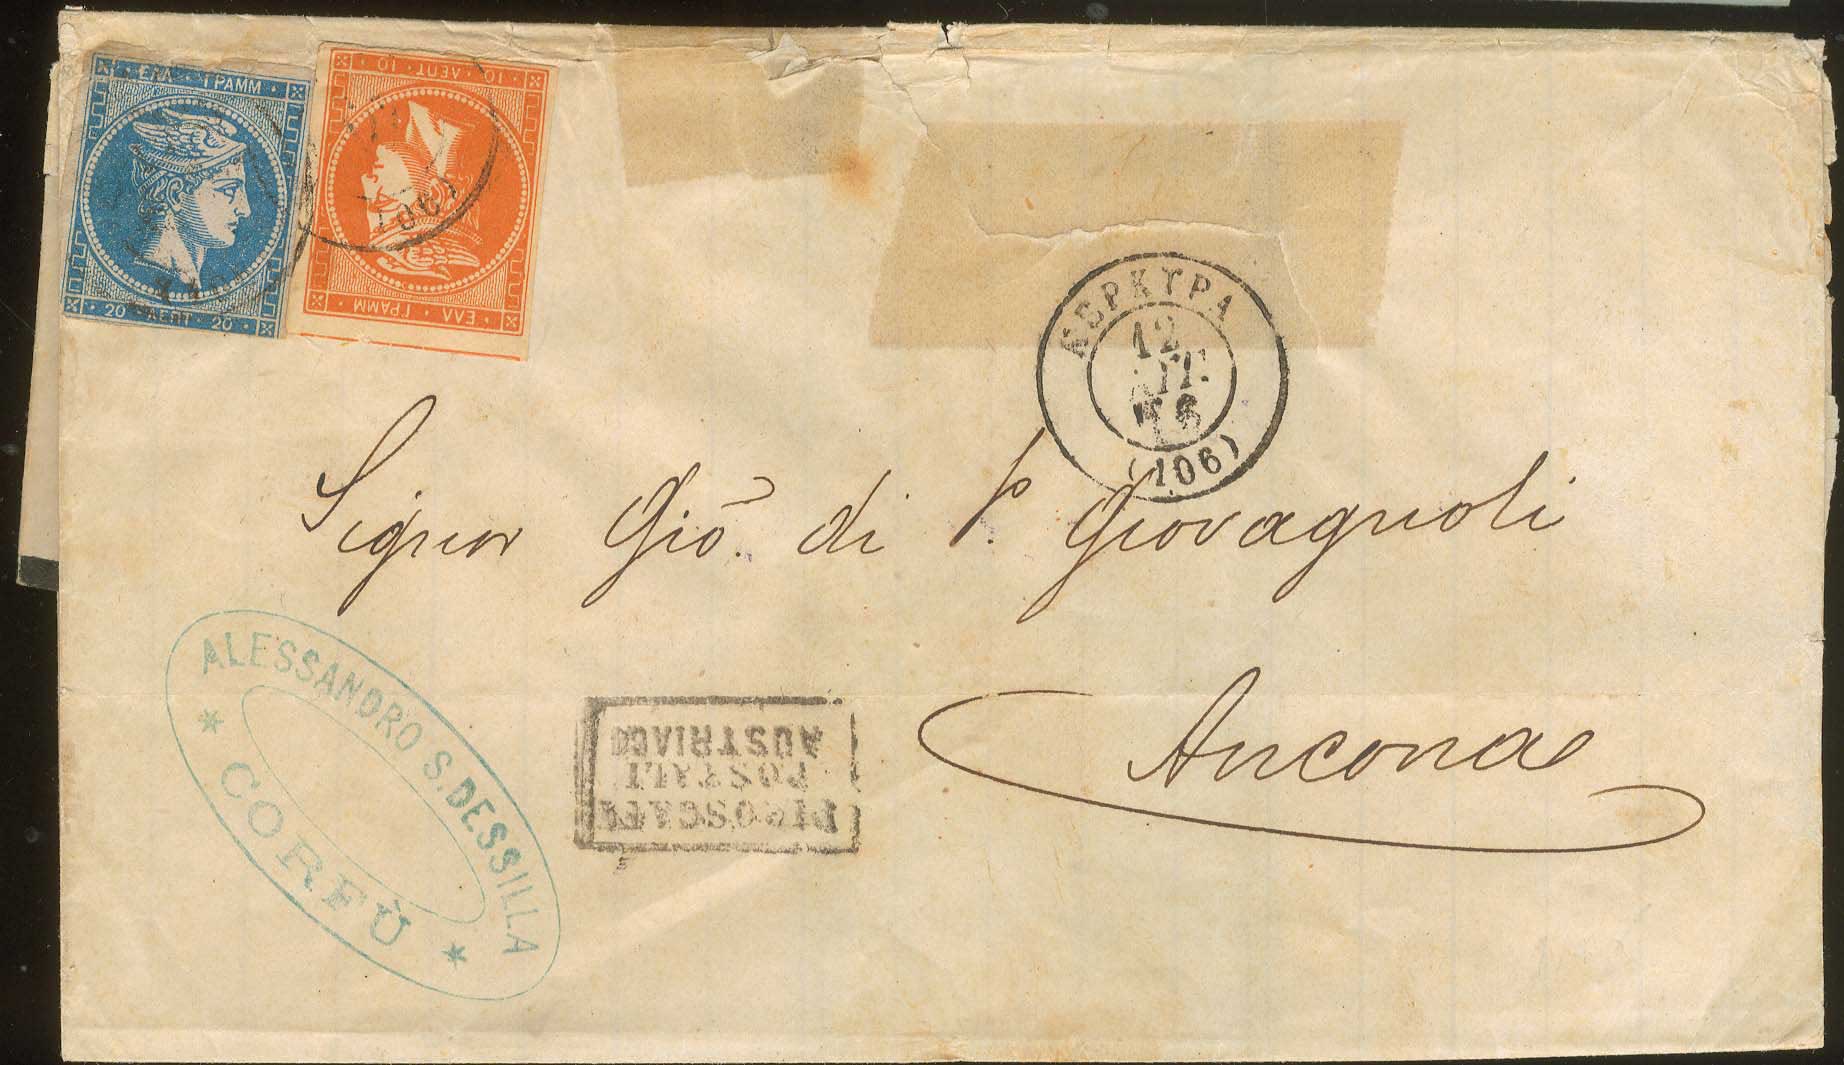 ΕΛΛ · ΓΡΑΜΜ
20 · ΛΕΠΤ · 20
10 · ΛΕΠΤ · 10
ΕΛΛ ΓΡΑΜΜ
(106)
ΚΕΡΚΥΡΑ
12
ΑΠ.
76
(106)
Signor Gio. di P. Giovagnoli
Ancona
ALESSANDRO S. DESSILLA
* CORFÙ *
PIROSCAFI
POSTALI
AUSTRIACI